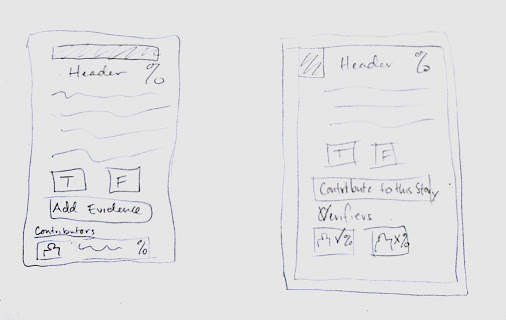 Header %
T F
Add Evidence
Contributors
%
Header %
T F
Contribute to this Story
Verifiers
✓% x%